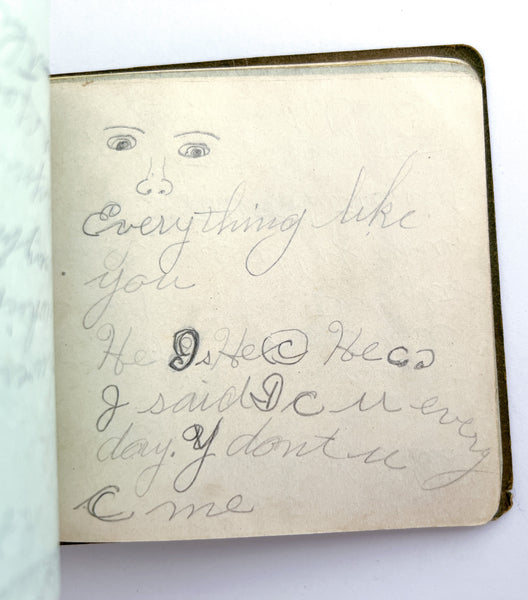 Everything like
you
He Is He C He cs
I said I c u every
day. Y dont u
C me